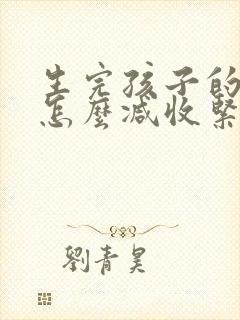 生完孩子的
怎麼減收緊
劉青昊